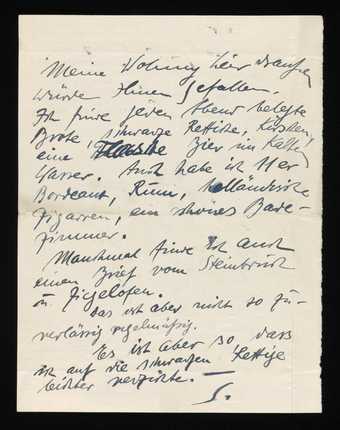 Meine Wohnung hier draußen
würde Ihnen gefallen.
Ich finde jeden Abend belegte
Brote, schwarze Rettiche, Kirschen,
eine Flasche Bier im kalten
Wasser. Auch habe ich 11er
Bordeaux, Rum, holländische
Zigarren, ein schönes Bade-
zimmer.
Manchmal finde ich auch
einen Brief vom Steinbruch
u. Ziegelofen.
Das ist aber nicht so zu-
verlässig regelmässig.
Es ist aber so, dass
ich auf die schwarzen Rettige
leichter verzichte. —